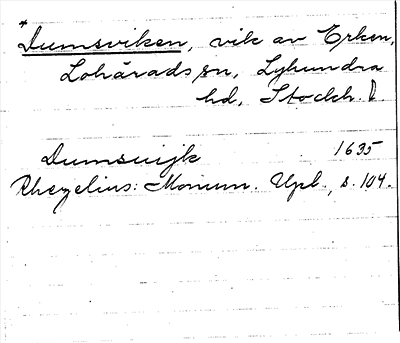 *Dumsviken, vik av Erken,
Lohärads sn, Lyhundra
hd, Stockh. l.
Dumsuijk 1635
Rhezelius: Monum. Upl., s. 104.